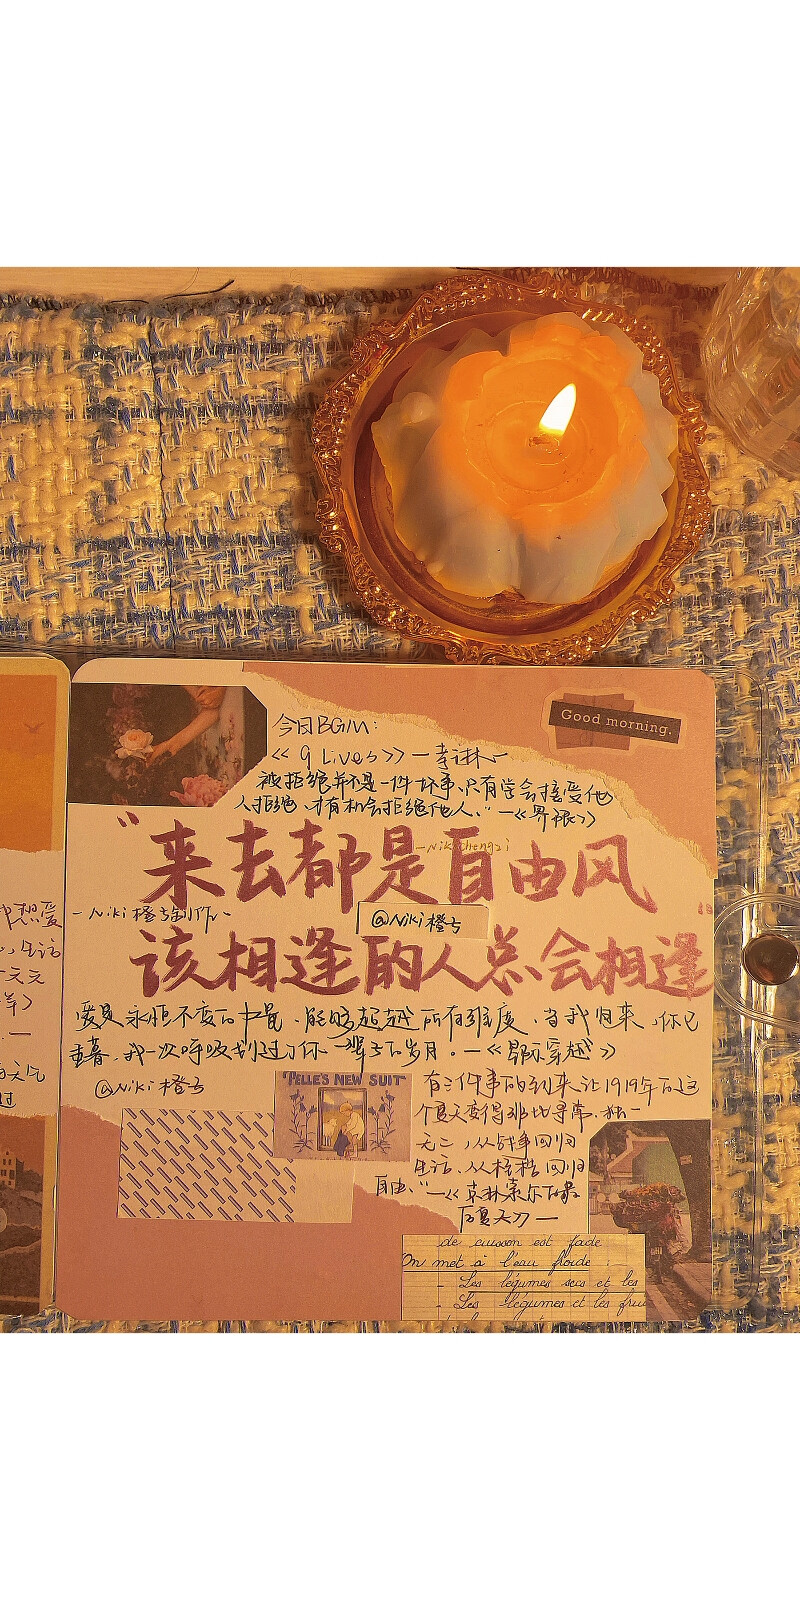 今日BGM:
Good morning.
被拒绝并不是一件坏事,只有学会接受他
人拒绝,才有机会拒绝他人。"—《界限》
"来去都是自由风
-Niki橙子制作-
@Niki橙子
该相逢的人总会相逢"
爱是永恒不变的力量,能够超越所有维度,当我归来,你已
垂暮,我一次呼吸划过了你一辈子的岁月。—《星际穿越》
@Niki橙子
PELLE'S NEW SUIT
有三件事的到来让1919年的这
个夏天变得非比寻常,独一
无二,从战争回归
生活、从桎梏回归
自由。"—《
的夏天》—
de cuisson est fade
On met à l'eau froide :
- Les légumes secs et les
- Les légumes et les frui
想爱
生活